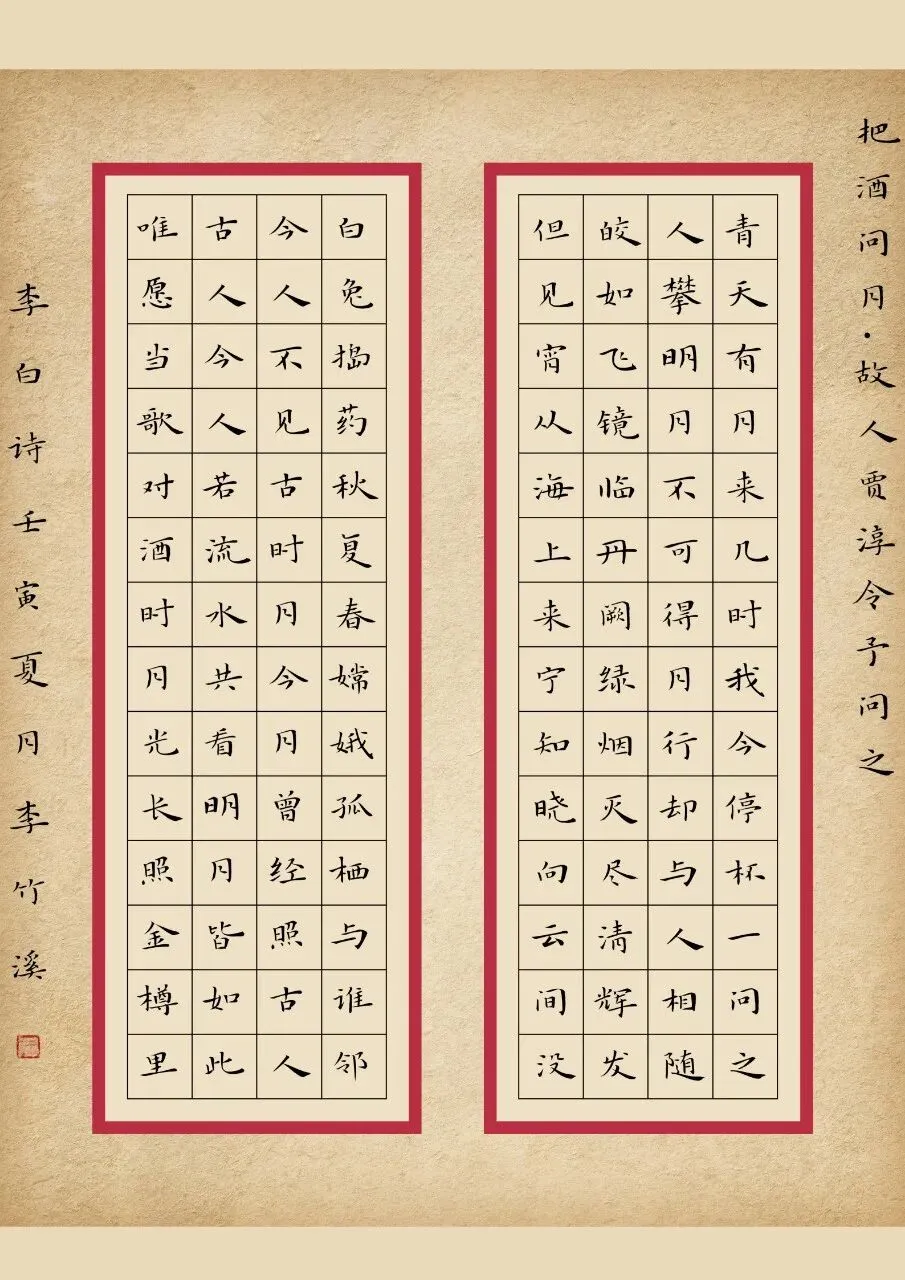 把酒问月·故人贾淳令予问之
青天有月来几时我今停杯一问之
人攀明月不可得月行却与人相随
皎如飞镜临丹阙绿烟灭尽清辉发
但见宵从海上来宁知晓向云间没
白兔捣药秋夏春嫦娥孤栖与谁邻
今人不见古时月今月曾经照古人
古人今人若流水共看明月皆如此
唯愿当歌对酒时月光长照金樽里
李白诗壬寅夏月李竹溪